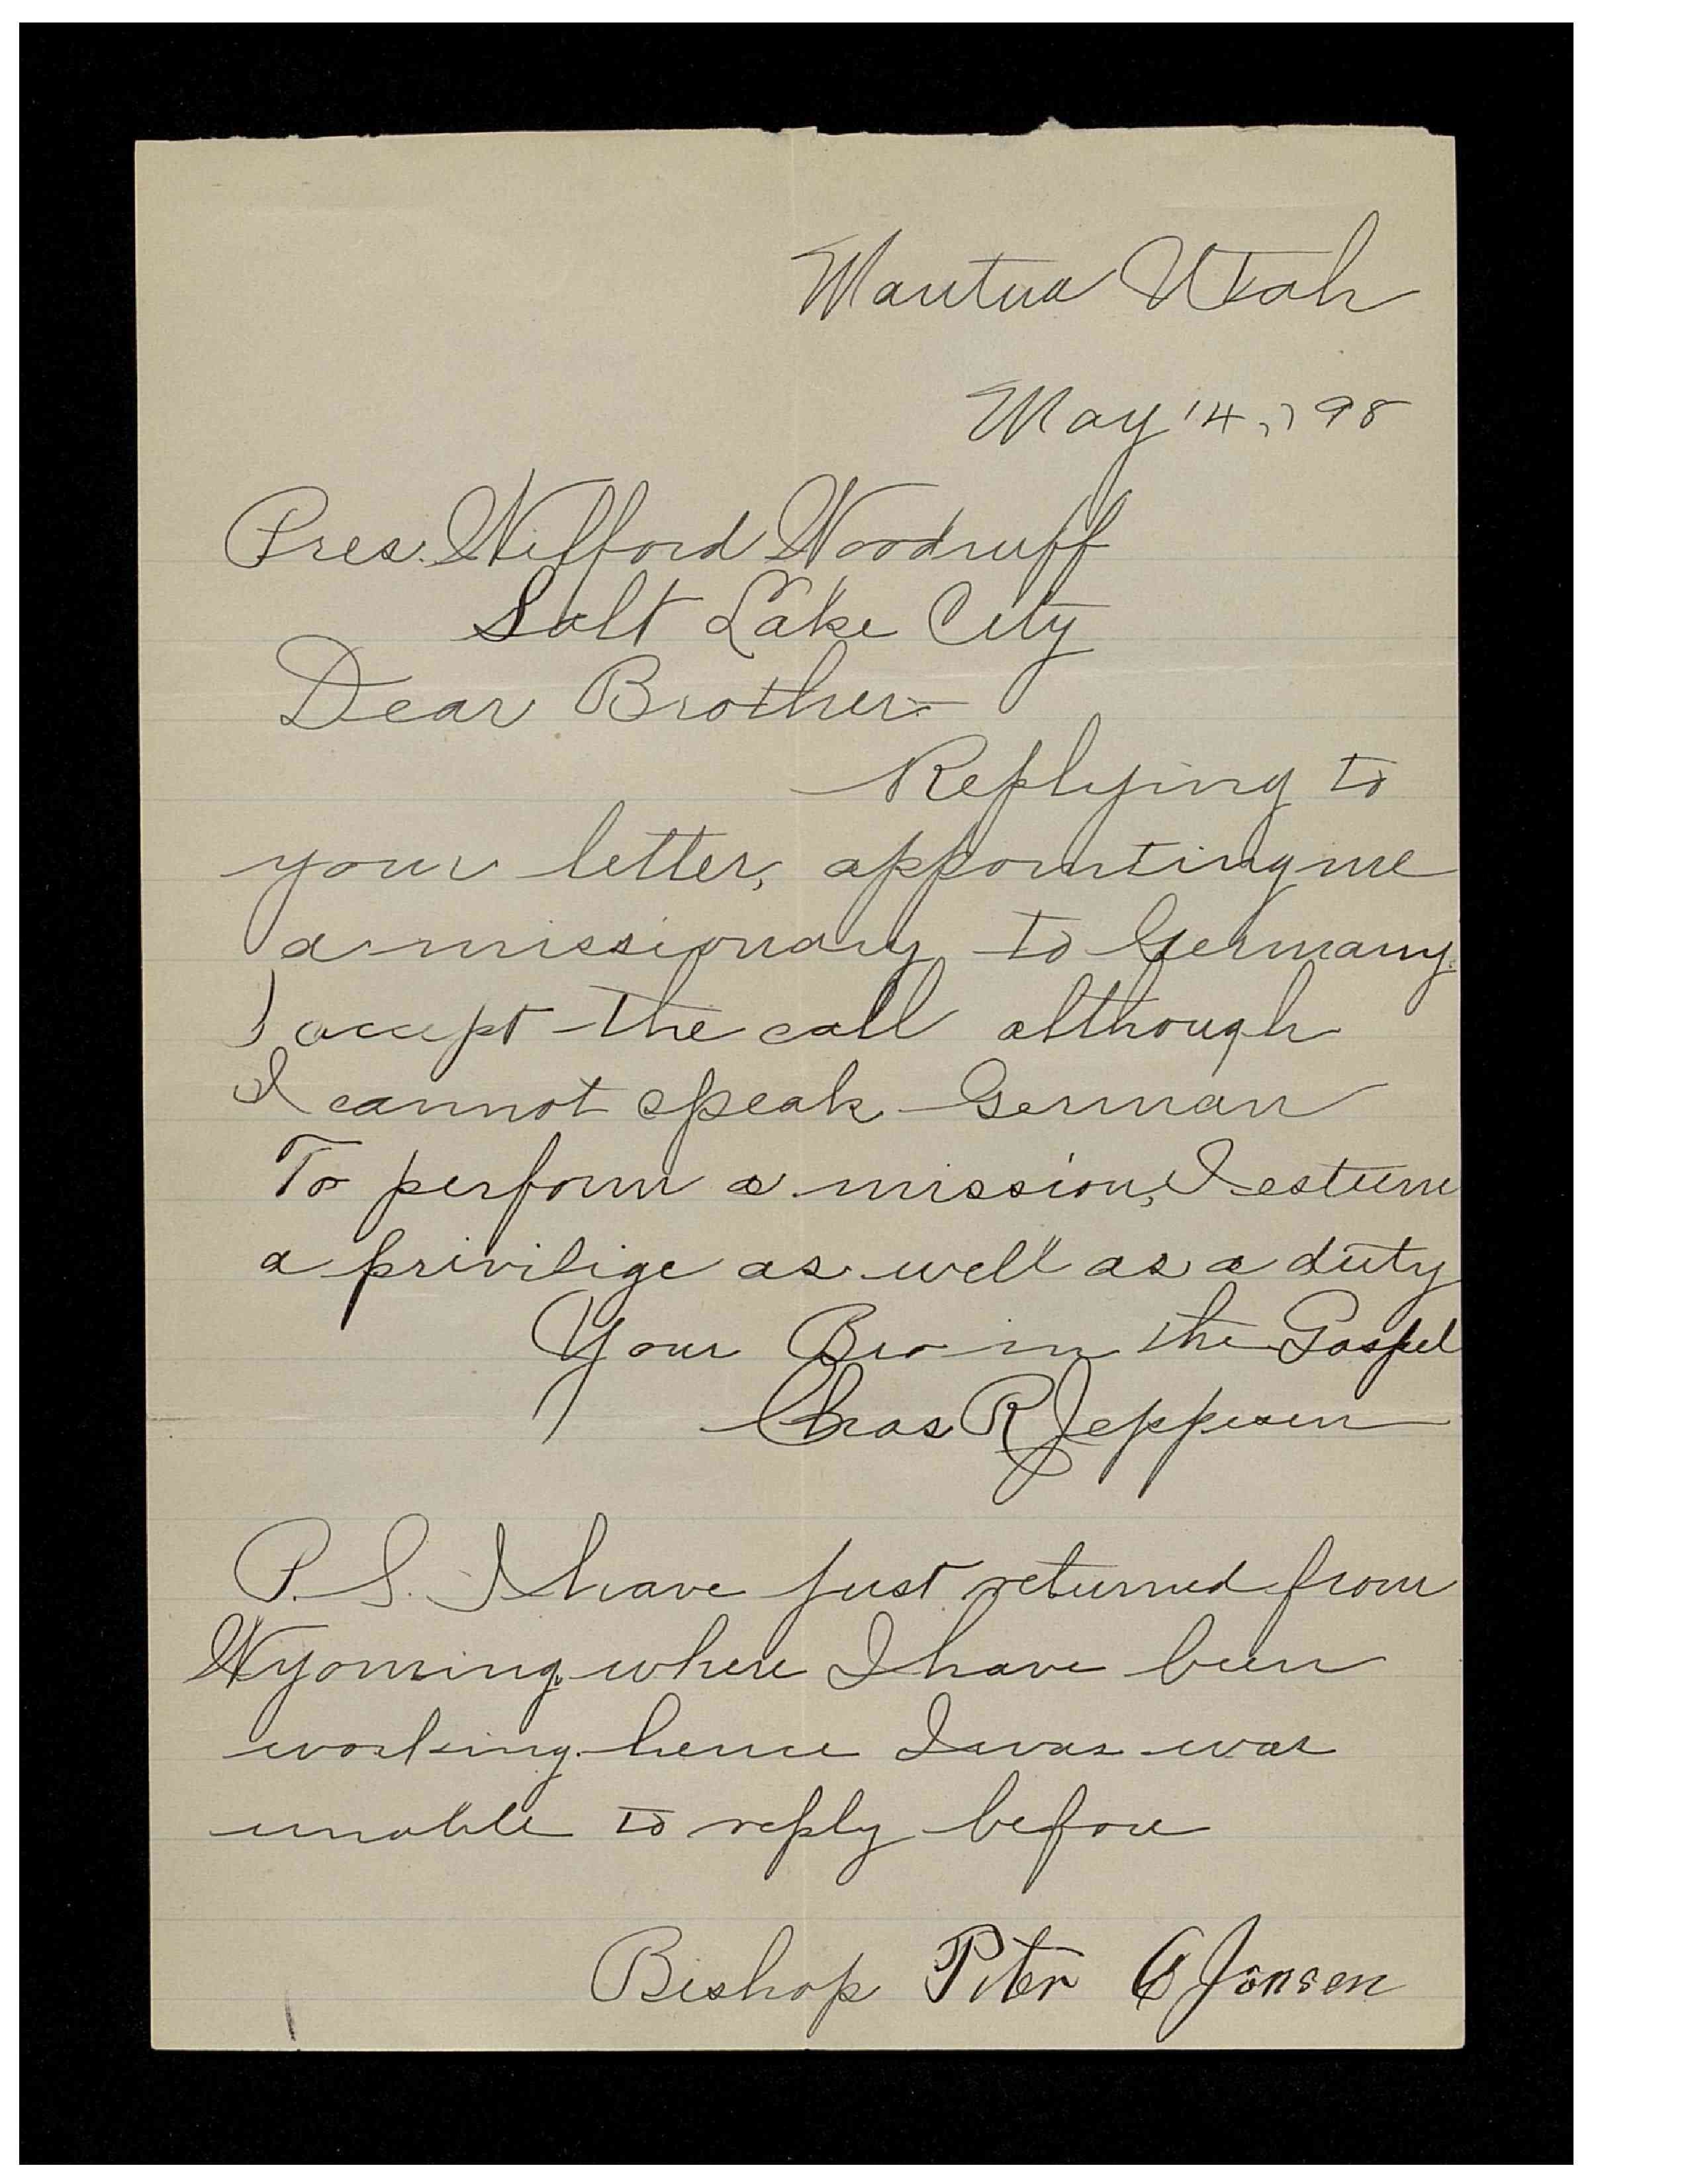 Mantua Utah
May 14, '98
Pres. Wilford Woodruff
Salt Lake City
Dear Brother:–
Replying to
your letter, appointing me
a missionary to Germany.
I accept the call although
I cannot speak German
To perform a mission, I esteem
a privilige as well as a duty
Your Bro in the Gospel
Chas R Jeppesen
P.S. I have just returned from
Wyoming where I have been
working hence I was was
unable to reply before
Bishop Peter C Jensen